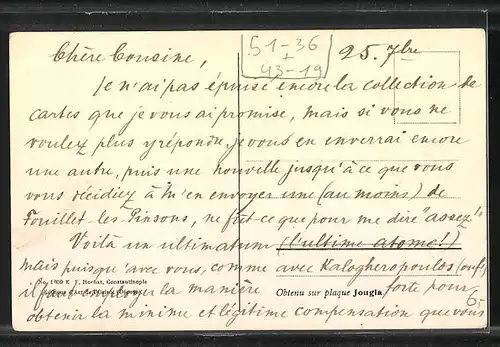 51-36
+
43-19
25. 7bre
Chère Cousine,
Je n'ai pas épuisé encore la collection de
cartes que je vous ai promise, mais si vous ne
voulez plus y répondre, je vous en enverrai encore
une autre, puis une nouvelle jusqu'à ce que vous
vous décidiez à m'en envoyer une (au moins) de
Fouillet-les-Pinsons, ne fût-ce que pour me dire "assez!"
Voilà un ultimatum (l'ultime atome!)
mais puisqu'avec vous, comme avec Kalogheropoulos (ouf!)
il faut employer la manière forte pour
obtenir la minime et légitime compensation que vous
Constantinople
Obtenu sur plaque Jougla
6.-